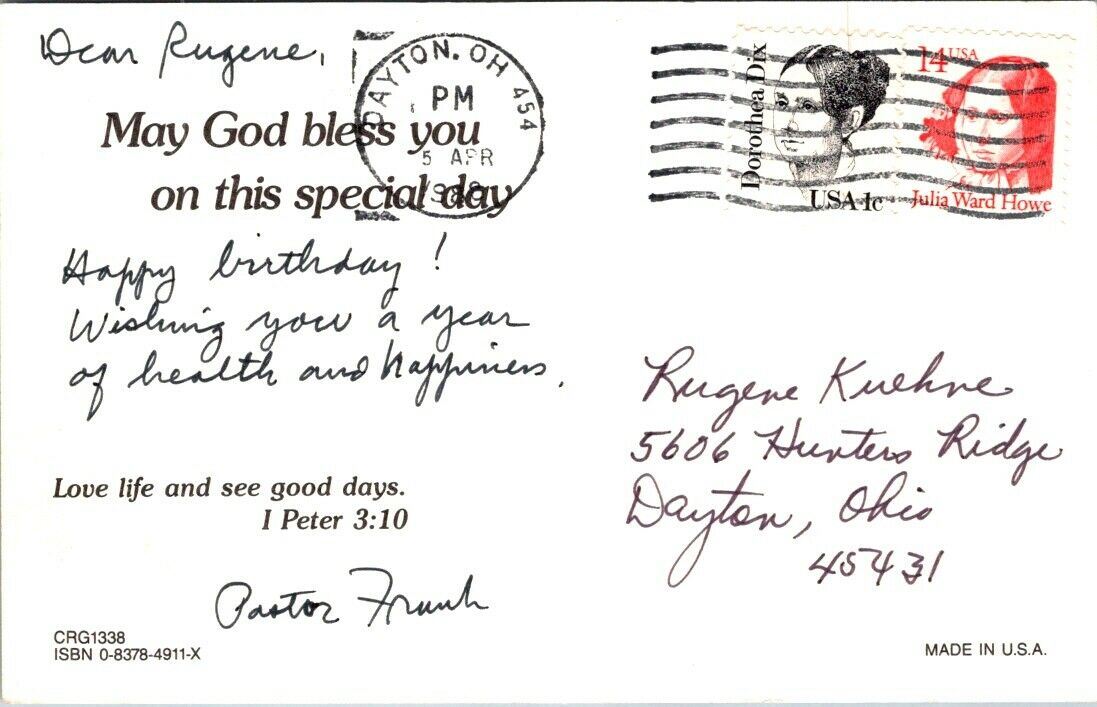 Dear Rugene,
May God bless you
on this special day
Happy birthday!
Wishing you a year
of health and happiness.
Love life and see good days.
I Peter 3:10
Pastor Frank
CRG1338
ISBN 0-8378-4911-X
DAYTON, OH 454
PM
5 APR
Dorothea Dix
USA 1c
14 USA
Julia Ward Howe
Rugene Kuehne
5606 Hunters Ridge
Dayton, Ohio
45431
MADE IN U.S.A.